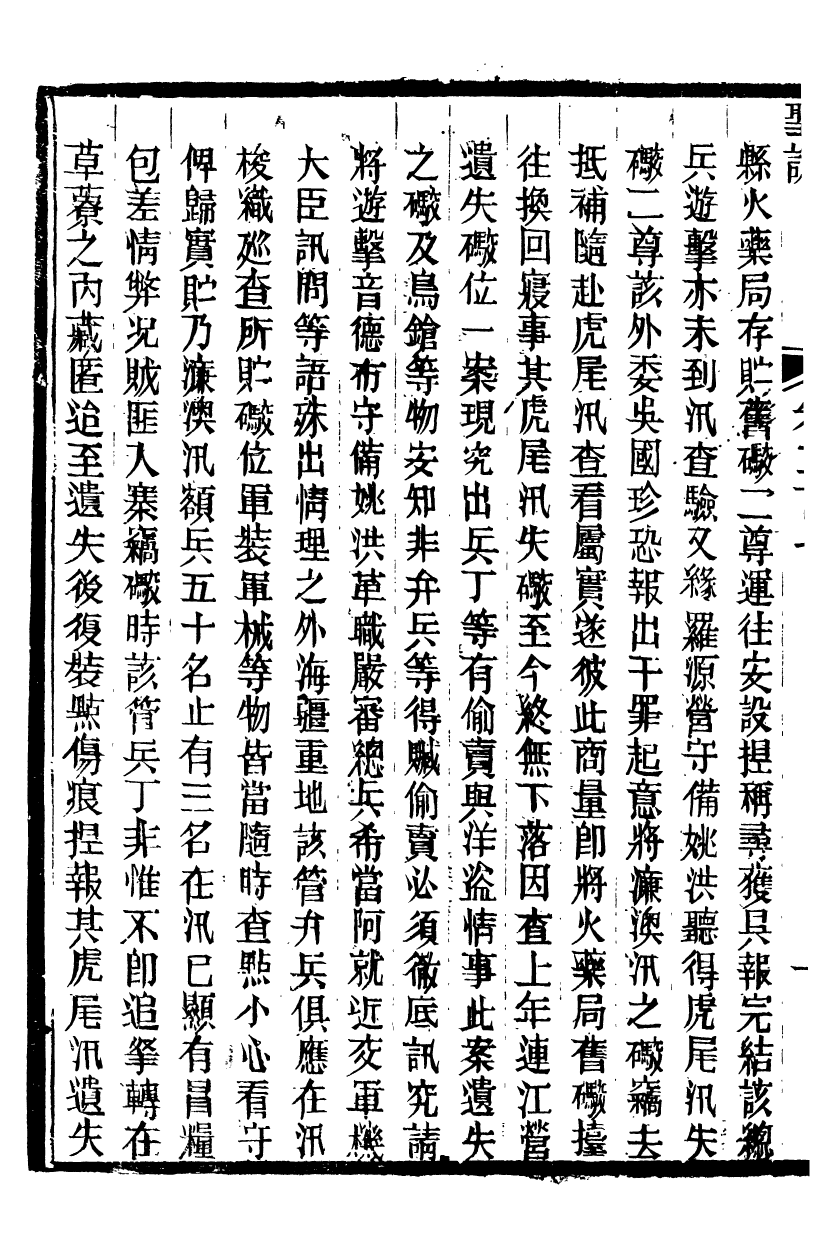 聖訓
縣火藥局存貯舊礮二尊運往安設捏稱尋獲具報完結該總
兵遊擊亦未到汛查驗又緣羅源營守備姚洪聽得虎尾汛失
礮二尊該外委吳國珍恐報出干罪起意將濂澳汛之礮竊去
抵補隨赴虎尾汛查看屬實遂彼此商量卽將火藥局舊礮擡
往換回寢事其虎尾汛失礮至今終無下落因查上年連江營
遺失礮位一案現究出兵丁等有偷賣與洋盜情事此案遺失
之礮及鳥鎗等物安知非弁兵等得贓偷賣必須徹底訊究請
將遊擊音德布守備姚洪革職嚴審總兵希當阿就近交軍機
大臣訊問等語殊出情理之外海疆重地該管弁兵俱應在汛
梭織廵查所貯礮位軍裝軍械等物皆當隨時查㸃小心看守
俾歸實貯乃濂澳汛額兵五十名止有三名在汛已顯有冒糧
包差情弊況賊匪人寨竊礮時該管兵丁非惟不卽追拏轉在
草藔之內藏匿迨至遺失後復裝㸃傷痕捏報其虎尾汛遺失